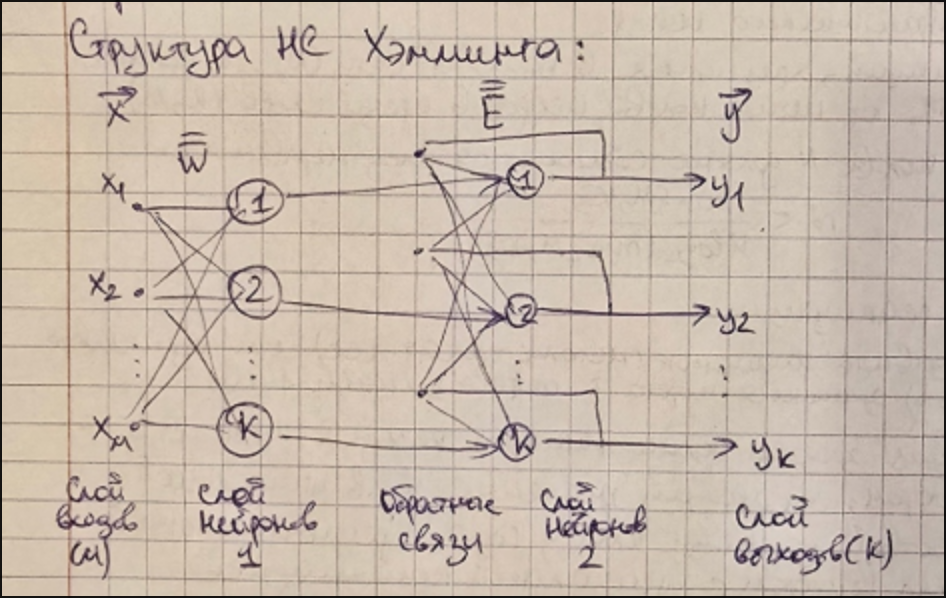 Структура НС Хэмминга:
X W E y
x1 1 1 y1
x2 2 2 y2
⋮ ⋮ ⋮ ⋮
xм K K yK
Слой входов (м)
Слой нейронов 1
Обратные связи
Слой нейронов 2
Слой выходов (K)